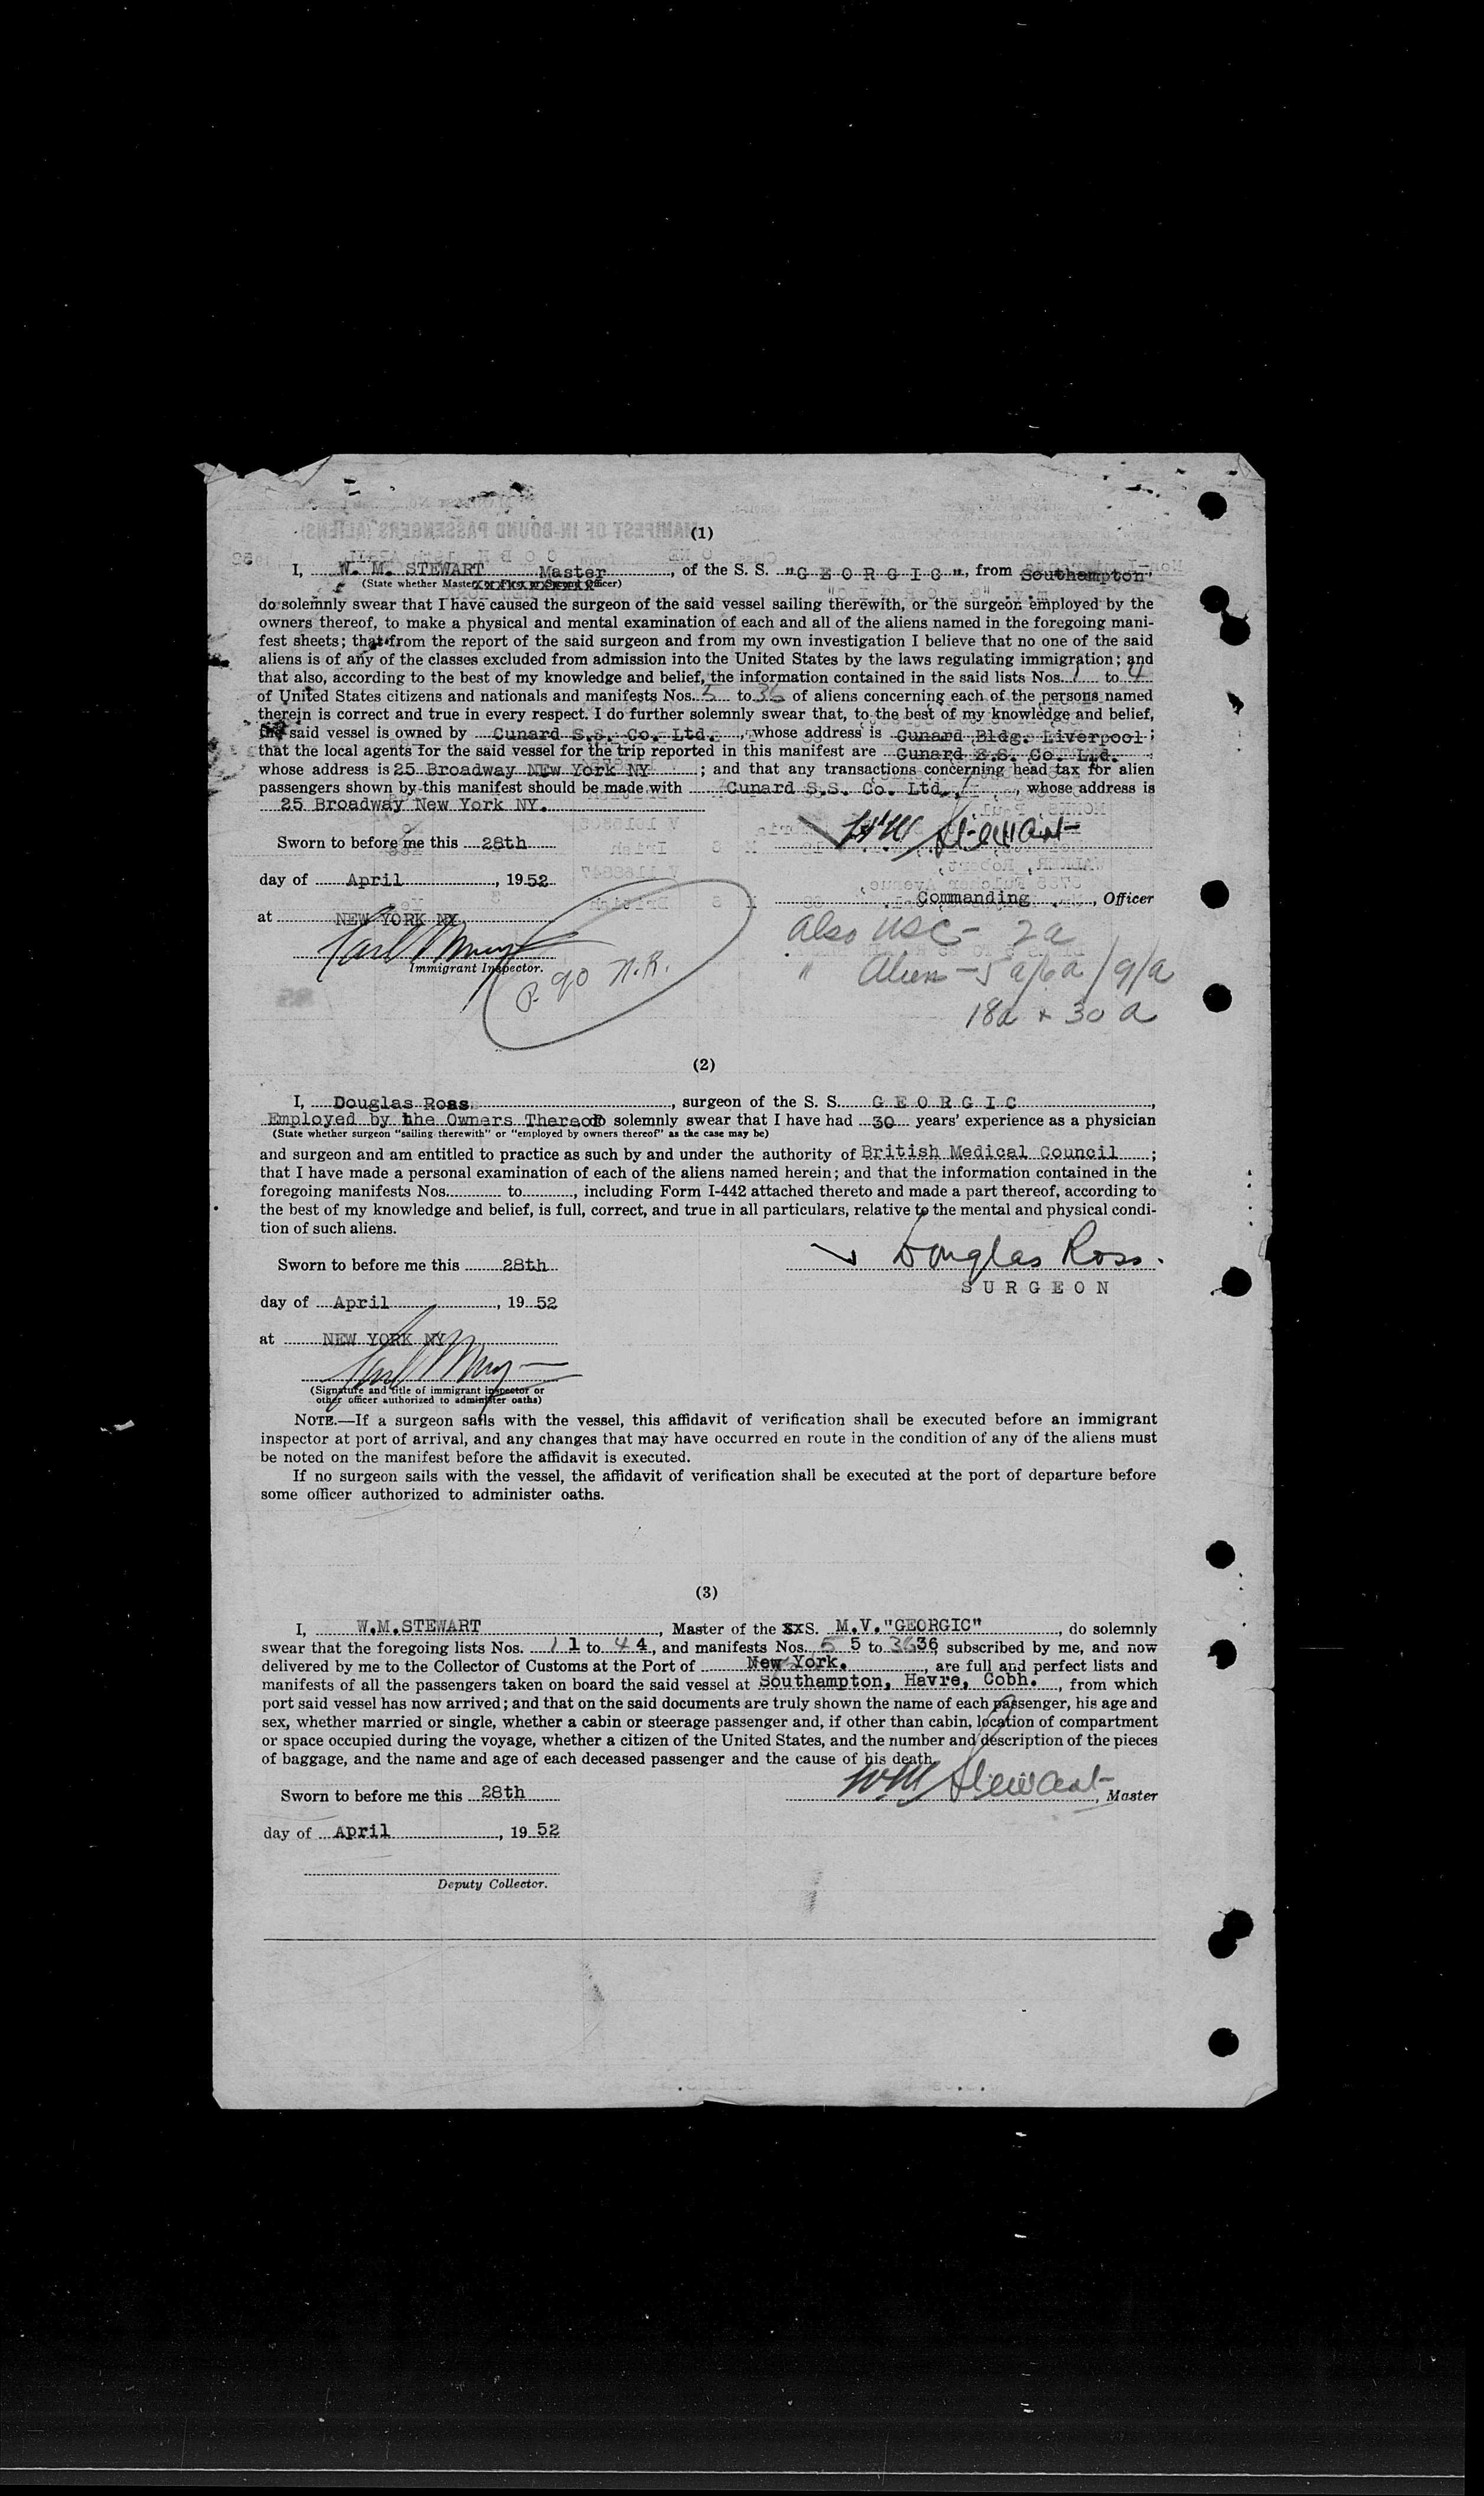 (1)
I, W. M. STEWART Master, of the S. S. "G E O R G I C", from Southampton,
(State whether Master, or First or Second Officer)
do solemnly swear that I have caused the surgeon of the said vessel sailing therewith, or the surgeon employed by the
owners thereof, to make a physical and mental examination of each and all of the aliens named in the foregoing mani-
fest sheets; that from the report of the said surgeon and from my own investigation I believe that no one of the said
aliens is of any of the classes excluded from admission into the United States by the laws regulating immigration; and
that also, according to the best of my knowledge and belief, the information contained in the said lists Nos. 1 to 4
of United States citizens and nationals and manifests Nos. 5 to 36 of aliens concerning each of the persons named
therein is correct and true in every respect. I do further solemnly swear that, to the best of my knowledge and belief,
the said vessel is owned by Cunard S.S. Co. Ltd., whose address is Cunard Bldg. Liverpool;
that the local agents for the said vessel for the trip reported in this manifest are Cunard S.S. Co. Ltd.
whose address is 25 Broadway NEw York NY; and that any transactions concerning head tax for alien
passengers shown by this manifest should be made with Cunard S.S. Co. Ltd., whose address is
25 Broadway New York NY.
Sworn to before me this 28th
W M Stewart
day of April, 1952
Commanding, Officer
at NEW YORK NY.
also USC - 2a
Immigrant Inspector.
P. 90 N.R.
" Alien - 5a/6a/9/a
18a + 30 a
(2)
I, Douglas Ross, surgeon of the S. S. G E O R G I C,
Employed by the Owners Thereof do solemnly swear that I have had 30 years' experience as a physician
(State whether surgeon "sailing therewith" or "employed by owners thereof" as the case may be)
and surgeon and am entitled to practice as such by and under the authority of British Medical Council;
that I have made a personal examination of each of the aliens named herein; and that the information contained in the
foregoing manifests Nos. to, including Form I-442 attached thereto and made a part thereof, according to
the best of my knowledge and belief, is full, correct, and true in all particulars, relative to the mental and physical condi-
tion of such aliens.
Sworn to before me this 28th
Douglas Ross.
SURGEON
day of April, 19 52
at NEW YORK NY
(Signature and title of immigrant inspector or
other officer authorized to administer oaths)
NOTE.—If a surgeon sails with the vessel, this affidavit of verification shall be executed before an immigrant
inspector at port of arrival, and any changes that may have occurred en route in the condition of any of the aliens must
be noted on the manifest before the affidavit is executed.
If no surgeon sails with the vessel, the affidavit of verification shall be executed at the port of departure before
some officer authorized to administer oaths.
(3)
I, W.M.STEWART, Master of the S. S. M.V."GEORGIC", do solemnly
swear that the foregoing lists Nos. 1 1 to 4 4, and manifests Nos. 5 5 to 36 36, subscribed by me, and now
delivered by me to the Collector of Customs at the Port of New York., are full and perfect lists and
manifests of all the passengers taken on board the said vessel at Southampton, Havre, Cobh., from which
port said vessel has now arrived; and that on the said documents are truly shown the name of each passenger, his age and
sex, whether married or single, whether a cabin or steerage passenger and, if other than cabin, location of compartment
or space occupied during the voyage, whether a citizen of the United States, and the number and description of the pieces
of baggage, and the name and age of each deceased passenger and the cause of his death.
Sworn to before me this 28th
W M Stewart, Master
day of April, 19 52
Deputy Collector.